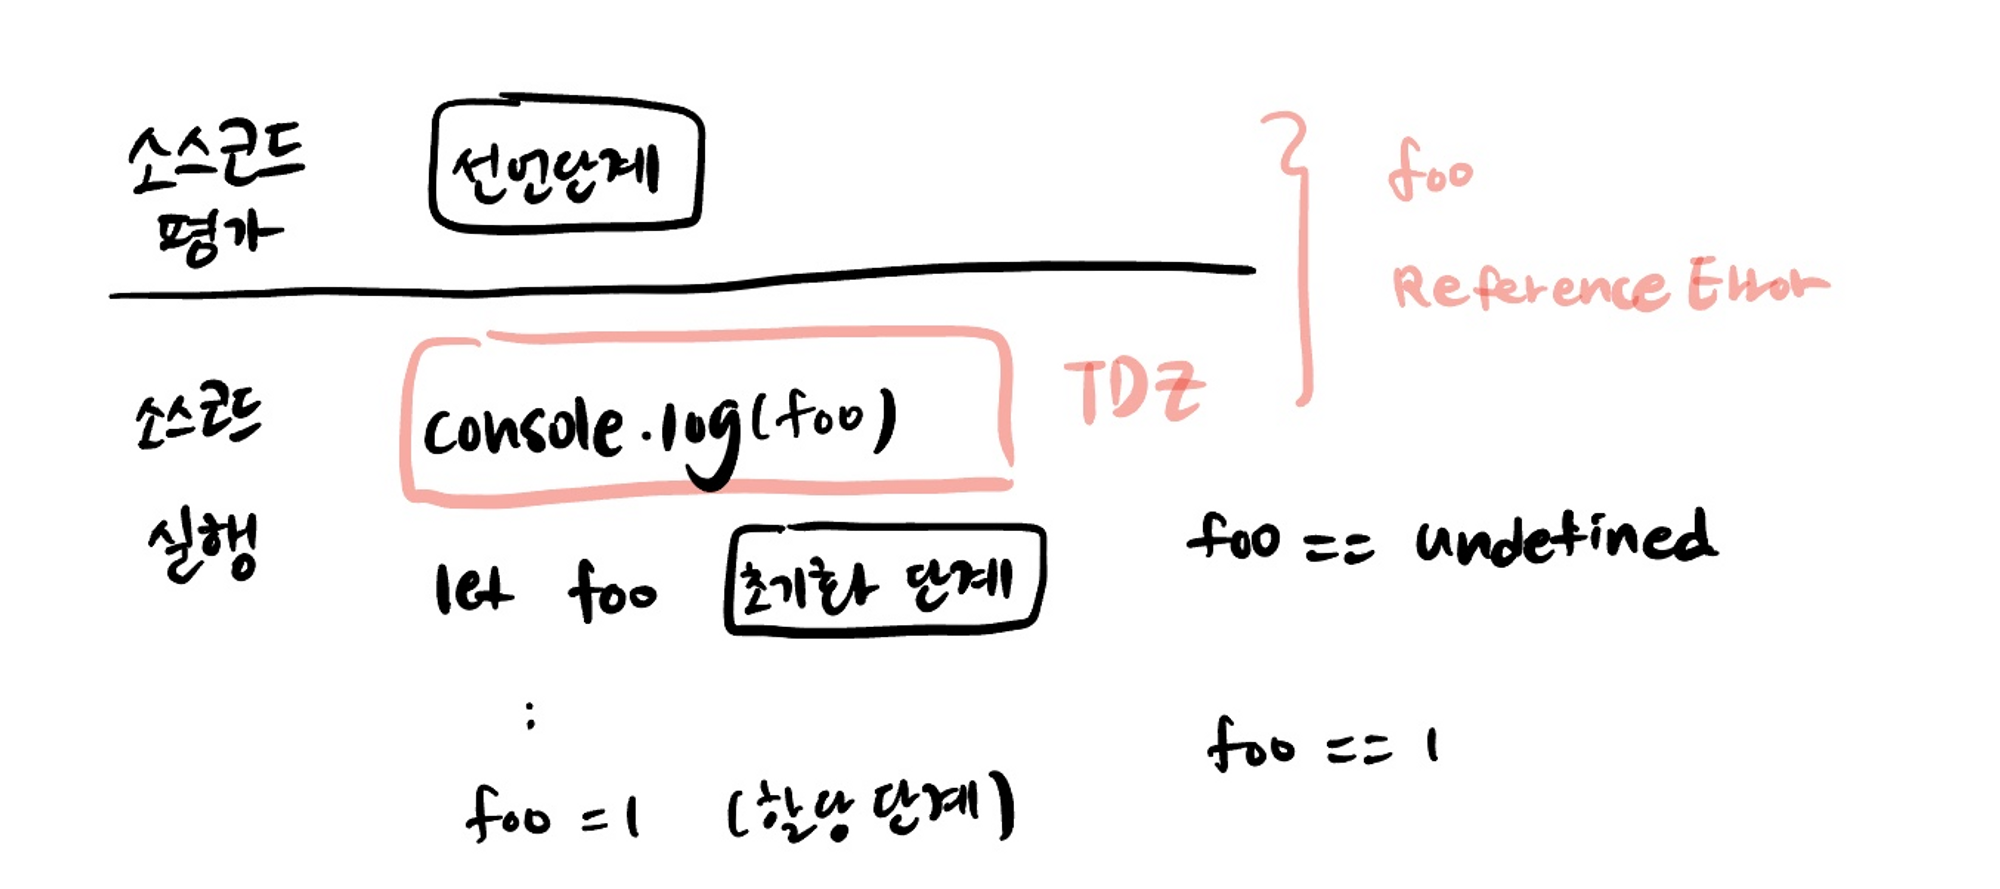 소스코드
평가
선언단계
foo
Reference Error
소스코드
실행
console.log(foo)
TDZ
let foo 초기화 단계
foo == undefined
:
foo = 1 (할당 단계)
foo == 1